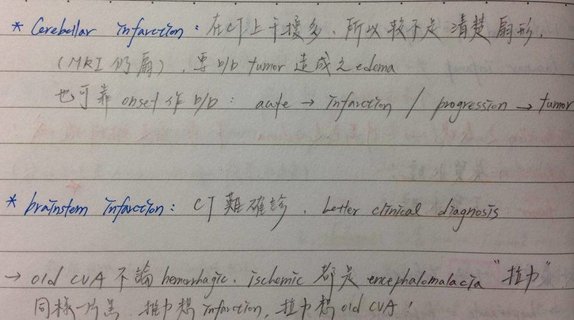 * Cerebellar infarction: 在CT上干擾多、所以較不是清楚扇形.
(MRI仍扇), 要D/D tumor 造成之edema
也可靠 onset 作 D/D: acute → infarction / progression → tumor
* brainstem infarction: CT 難確診、better clinical diagnosis
→ old CVA 不論 hemorrhagic、ischemic 都是 encephalomalacia
同樣一片黑, infarction, old CVA!